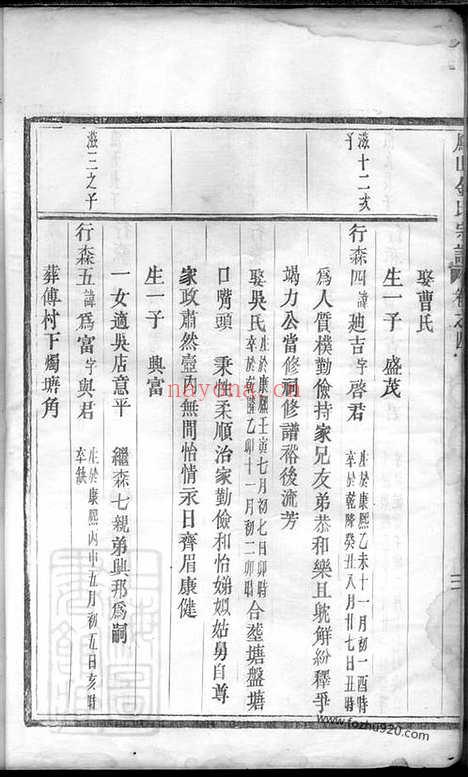 娶曹氏
生一子 盛茂
滋十二次子
行森四諱廸吉字啓君 生於康熙乙未十一月初一酉時 卒於乾隆癸丑八月廿七日丑時
爲人質樸勤儉持家兄友弟恭和樂且躭解紛釋爭
竭力公當修祠修譜裕後流芳
娶吳氏 生於康熙壬寅七月初七日卯時 卒於乾隆乙卯十一月初二卯時 合塟塘盤塘
口嘴頭 秉性柔順治家勤儉和怡娣姒姑舅自尊
家政肅然壼內無間怡情永日齊眉康健
生一子 興富
一女適吳店意平 繼森七親弟興邦爲嗣
滋三之子
行森五諱爲富字與君 生於康熙丙申五月初五日亥時 卒缺
葬傅村下燭塘角
三
nayona.cn
www.fozhu920.com